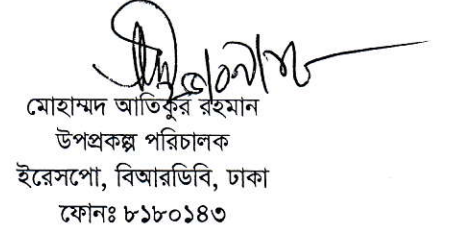 মোহাম্মদ আতিকুর রহমান
উপপ্রকল্প পরিচালক
ইরেসপো, বিআরডিবি, ঢাকা
ফোনঃ ৮১৮০১৪৩